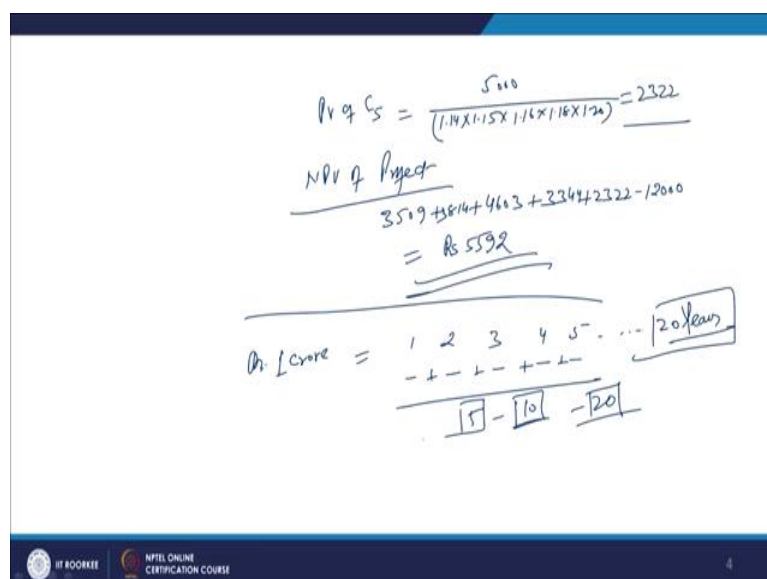 PV of C5 = 5000
(1.14X1.15X1.16X1.18X1.20) = 2322
NPV of Project
3509+3814+4603+3344+2322-12000
= Rs 5592
1 Crore = 1 2 3 4 5 . ... 20 Years
- + - + - + - + -
5 - 10 - 20
IIT ROORKEE
NPTEL ONLINE
CERTIFICATION COURSE
4